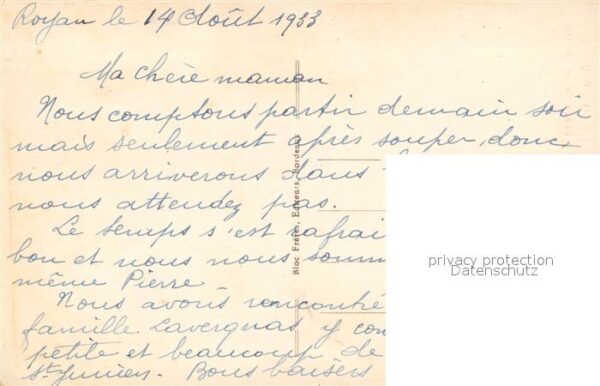 Royan le 14 Août 1933
Ma chère maman
Nous comptons partir demain soir
mais seulement après souper, donc
nous arriverons dans
nous attendez pas.
Le temps s'est rafrai
bon et nous nous somm
même Pierre
Nous avons rencontré
famille Lavergnas y com
petite et beaucoup de
St Junien. Bons baisers
Bloc Frères, Editeurs, Bordeaux
privacy protection
Datenschutz